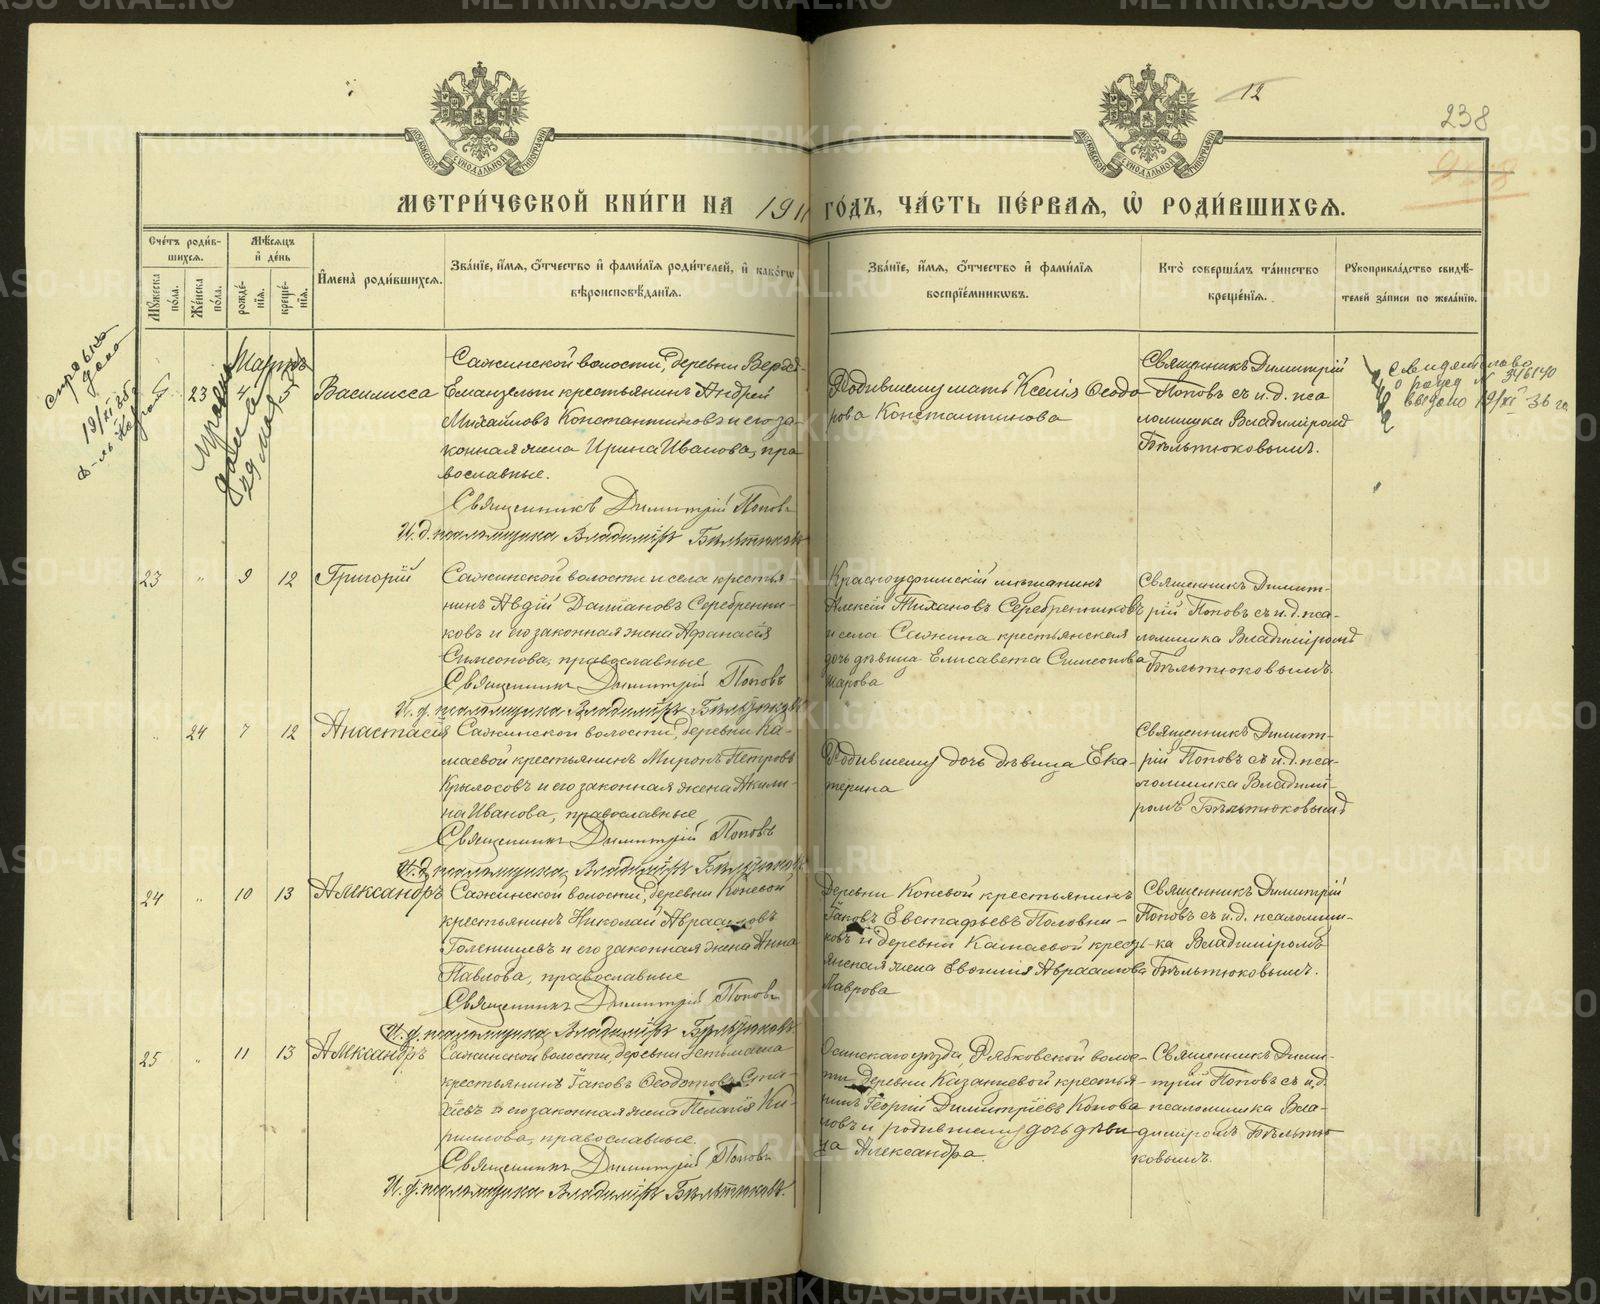 12
238
МЕТРИ́ЧЕСКОЙ КНИ́ГИ НА 1911 ГО́ДЪ, ЧА́СТЬ ПЕ́РВАЯ, Ѽ РОДИ́ВШИХСЯ.
Сче́тъ роди́в-
шихся.
Мꙋжеска по́ла.
Же́нска по́ла.
Мѣ́сяцъ
и де́нь
рожде́нїя.
креще́нїя.
Имена̀ роди́вшихся.
Зва́нїе, и́мя, ѻ́тчество и фами́лїя роди́телей, и како́гѡ
вѣроисповѣ́данїя.
Зва́нїе, и́мя, ѻ́тчество и фами́лїя
воспрїе́мникѡвъ.
Кто̀ соверша́лъ та́инство
креще́нїя.
Рꙋкоприкла́дство свидѣ́-
телей за́писи по жела́нїю.
Мартъ
23 4 5 Василисса
Сажинской волости, деревни Верхъ
Емангельш крестьянинъ Андрей
Михайловъ Константиновъ и его за-
конная жена Ирина Иванова, пра
вославные.
Священникъ Димитрій Поповъ
И. д. псаломщика Владиміръ Бѣльтюковъ
Родившему мать Ксенія Ѳеодо
рова Константинова
Священникъ Димитрій
Поповъ съ и. д. пса
ломщика Владиміромъ
Бѣльтюковымъ.
Свидетельство
о рожд № 346140
выдано 19/XI 36 г.
23 " 9 12 Григорій
Сажинской волости и села крестья
нинъ Авдій Даміановъ Серебренни-
ковъ и его законная жена Афанасія
Симеонова, православные
Священникъ Димитрій Поповъ
И. д. псаломщика Владиміръ Бѣльтюковъ
Красноуфимскій мѣщанинъ
Алексій Тихановъ Серебренниковъ
и села Сажина крестьянская
дочь дѣвица Елисавета Симеонова
Шарова
Священникъ Димит-
рій Поповъ съ и. д. пса-
ломщика Владиміромъ
Бѣльтюковымъ.
" 24 7 12 Анастасія
Сажинской волости, деревни Ка-
маевой крестьянинъ Миронъ Петровъ
Крылосовъ и его законная жена Акили-
на Иванова, православные
Священникъ Димитрій Поповъ
И. д. псаломщика Владиміръ Бѣльтюковъ
Родившему дочь дѣвица Ека-
терина
Священникъ Димит-
рій Поповъ съ и. д. пса-
ломщика Владимі-
ромъ Бѣльтюковымъ
24 " 10 13 Александръ
Сажинской волости, деревни Коневой
крестьянинъ Николай Авраамовъ
Голенищевъ и его законная жена Анна
Павлова, православные
Священникъ Димитрій Поповъ
И. д. псаломщика Владиміръ Бѣльтюковъ
Деревни Коневой крестьянинъ
Іаковъ Евстафьевъ Половни-
ковъ и деревни Камаевой кресть-
янская жена Евфимія Авраамова
Лаврова
Священникъ Димитрій
Поповъ съ и. д. псаломщи-
ка Владиміромъ
Бѣльтюковымъ.
25 " 11 13 Александръ
Сажинской волости, деревни Устьмаша
крестьянинъ Іаковъ Ѳеодотовъ Ста-
хіевъ и его законная жена Пелагія Ки-
риллова, православные.
Священникъ Димитрій Поповъ
И. д. псаломщика Владиміръ Бѣльтюковъ.
Осинскаго уѣзда Рябковской волос-
ти деревни Казанцевой крестья-
нинъ Георгій Димитріевъ Конова
ловъ и родившему дочь дѣви
ца Александра.
Священникъ Дими-
трій Поповъ съ и. д.
псаломщика Вла-
диміромъ Бѣльтю
ковымъ.